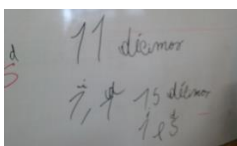 d
11 décimos
5
1,1 15 décimos
1 e 5